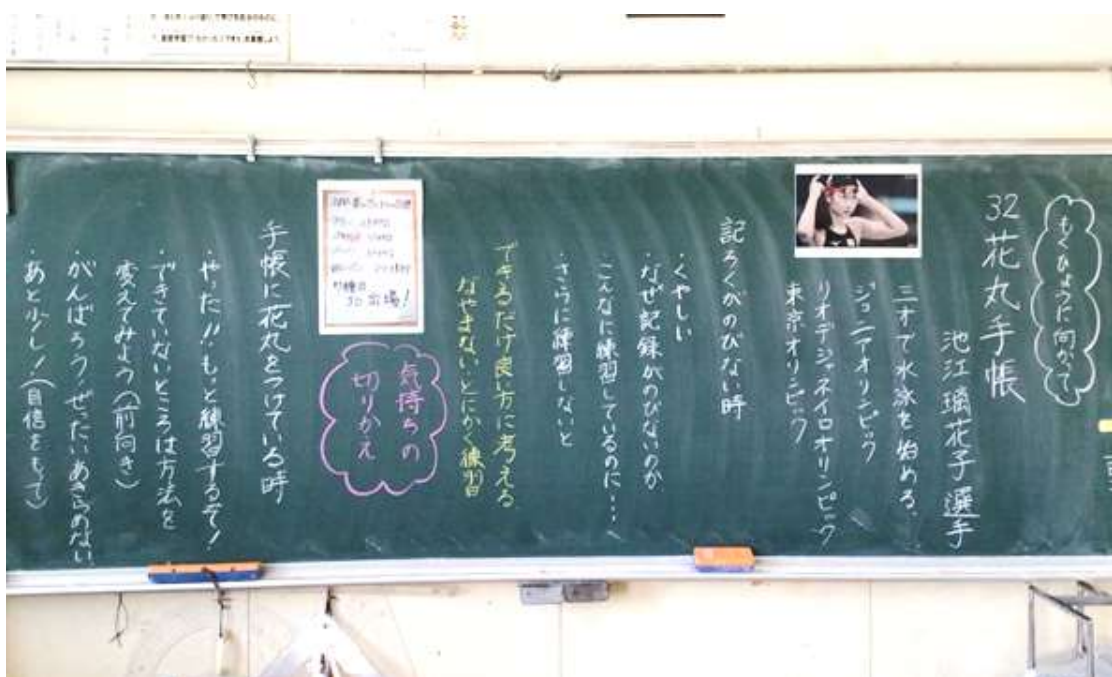 もくひょうに向かって
32花丸手帳
池江璃花子選手
三才で水泳を始める。
ジュニアオリンピック
リオデジャネイロオリンピック
東京オリンピック
記ろくがのびない時
・くやしい
・なぜ記録がのびないのか
こんなに練習しているのに・・・
・さらに練習しないと
できるだけ良い方に考える
なやまないとにかく練習
気持ちの
切りかえ
出場!
手帳に花丸をつけている時
・やった!!もっと練習するぞ!
・できていないところは方法を
変えてみよう(前向き)
・がんばろう!ぜったいあきらめない
あと少し!(自信をもって)